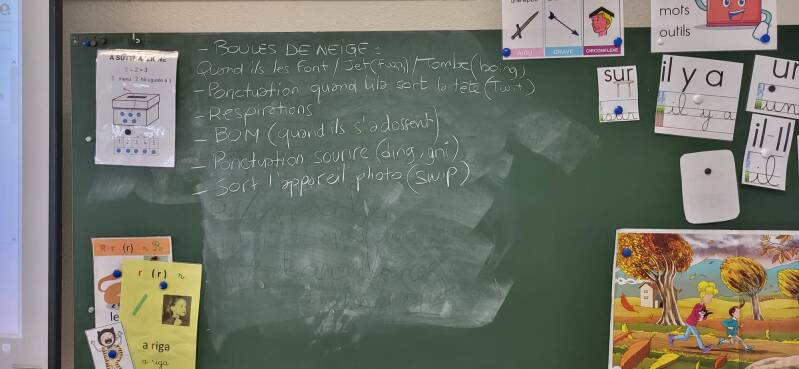 - BOULES DE NEIGE :
Quand ils les font / Jet (Fuin) / Tombe (boing)
- Ponctuation quand Lila sort la tête (Twit)
- RESPIRATIONS
- BOM (quand ils s'adossent)
- Ponctuation sourire (ding, gni)
- Sort l'appareil photo (swip)
A SUTTRAZZIONE
1 2 3 4 5
AIGU
GRAVE
CIRCONFLEXE
mots
outils
sur
il y a
il y a
un
il - ll
il
R r (r)
r (r) r
le
a riga
a riga